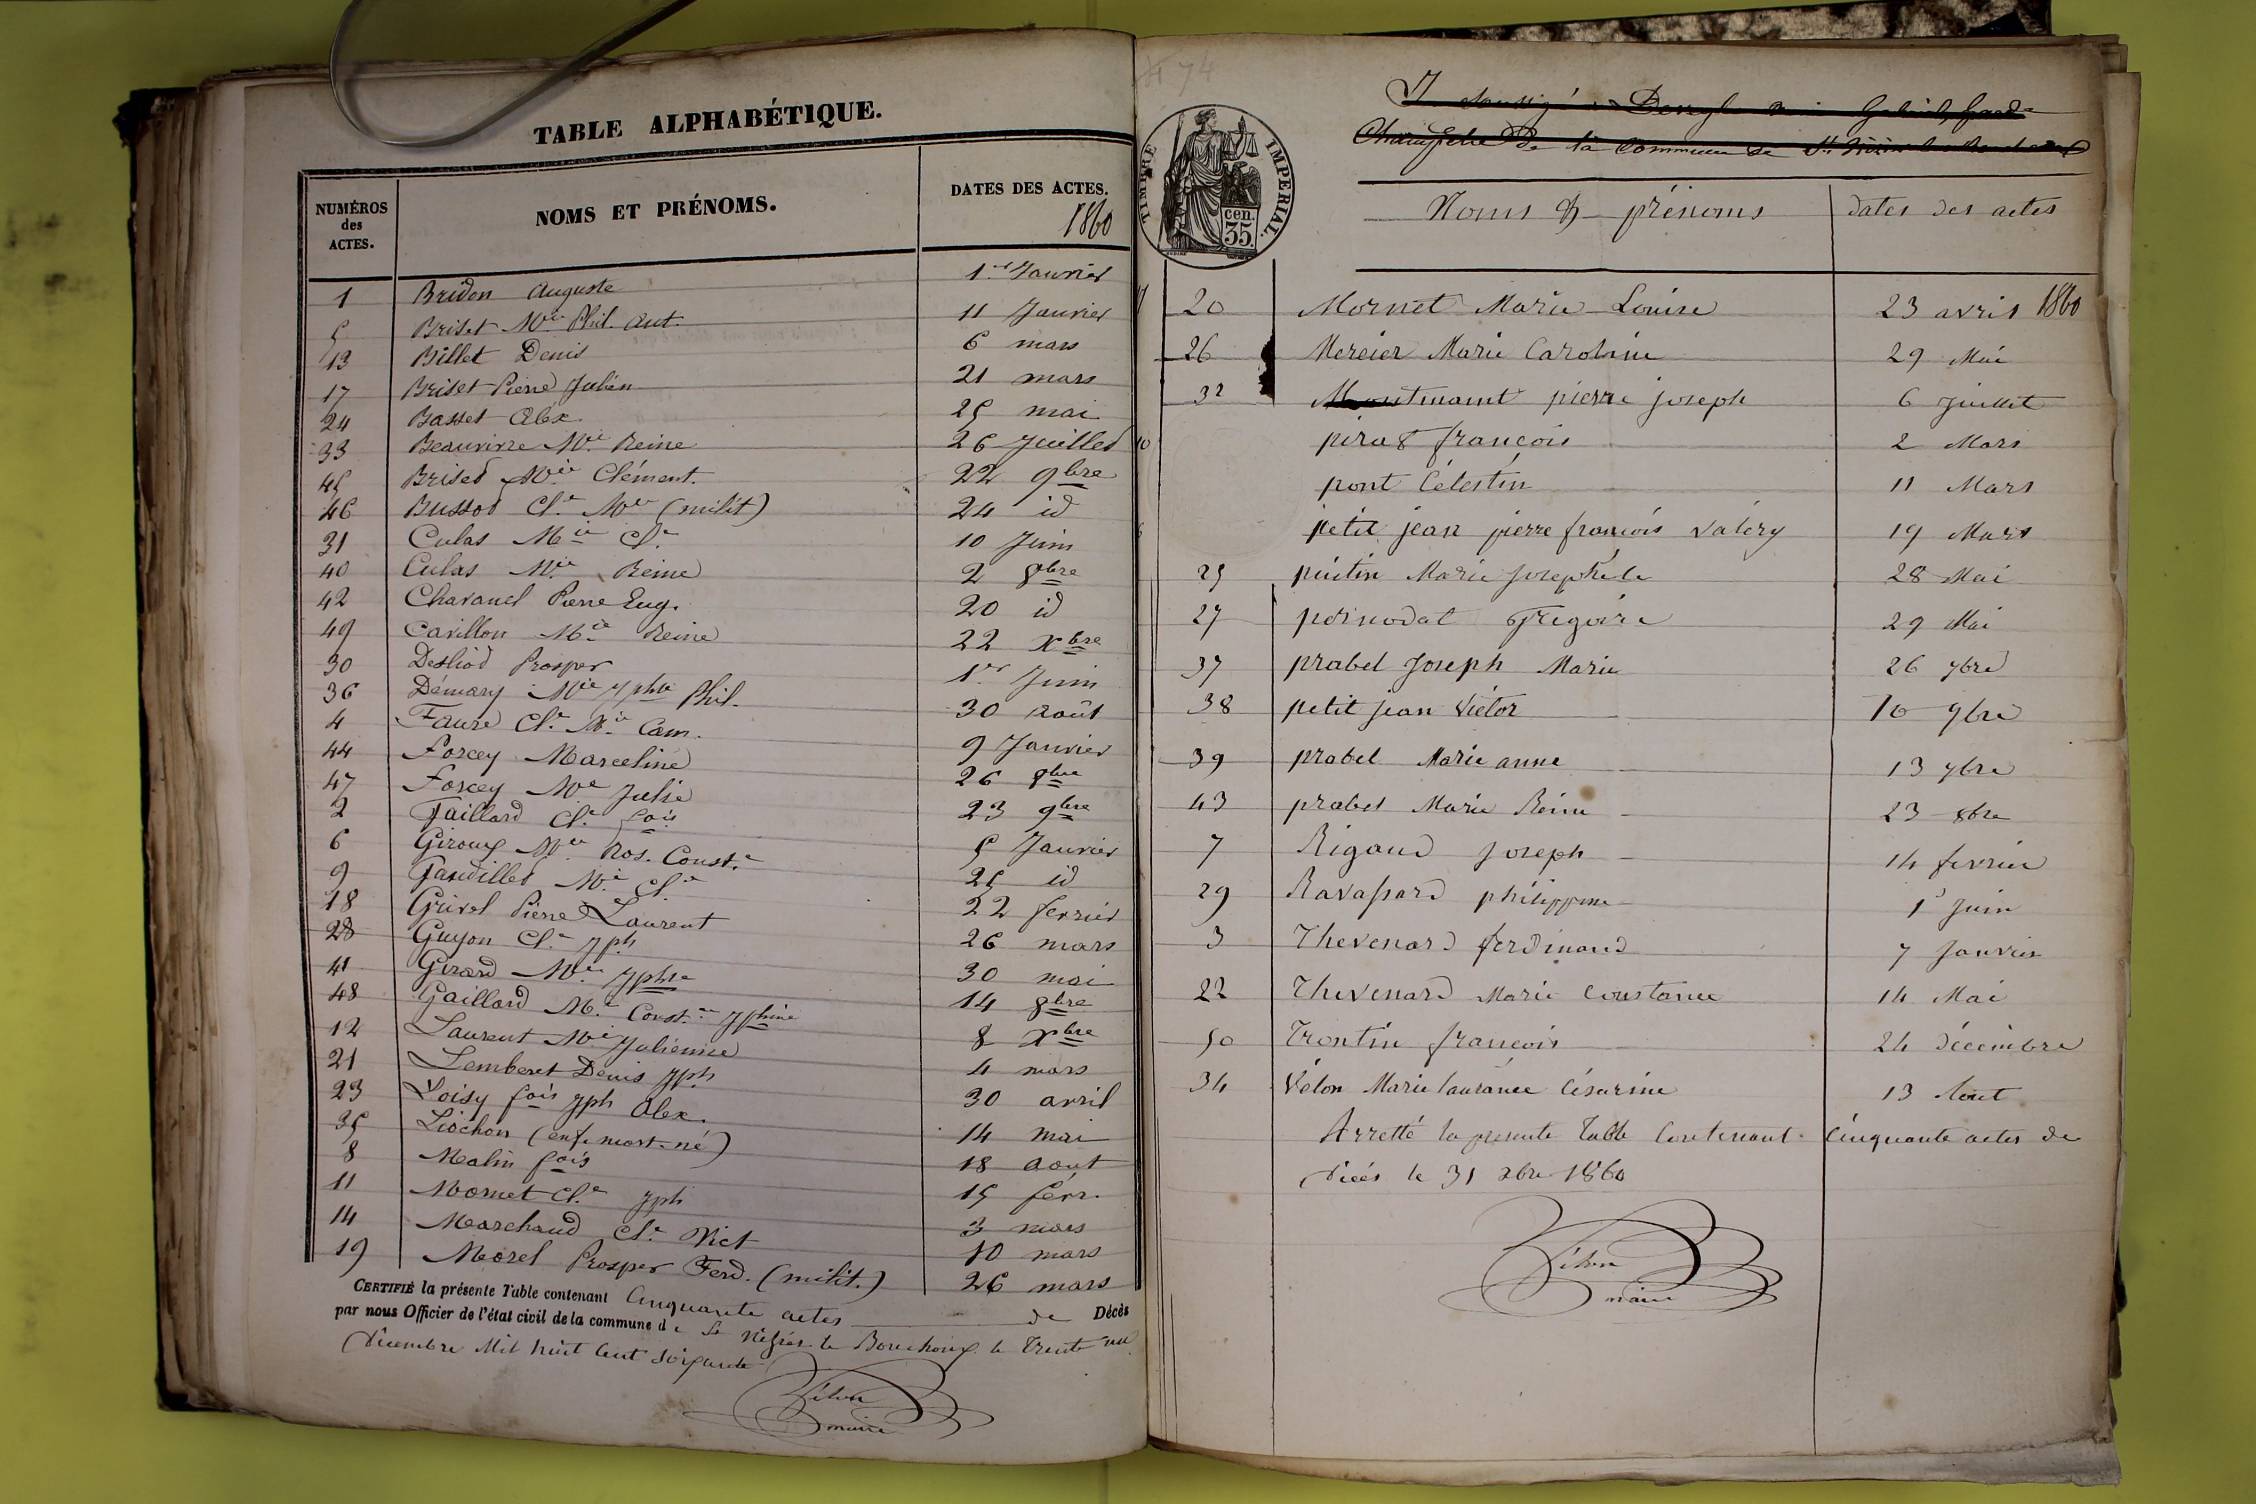 TABLE ALPHABÉTIQUE.
NUMÉROS des ACTES. NOMS ET PRÉNOMS. DATES DES ACTES. 1860
1 Bridon Auguste 1er Janvier
5 Briset Mie Phil. Ant. 11 Janvier
13 Billet Denis 6 mars
17 Briset Pierre Julien 21 mars
24 Basset Alex 25 mai
33 Beauvivre Mie Reine 26 Juillet
45 Briset Mie Clément. 22 9bre
46 Bussod Cl. Mie (milit) 24 id
31 Culas Mie Cl. 10 Juin
40 Culas Mie Reine 2 8bre
42 Chavanel Pierre Eug. 20 id
49 Cavillon Mie Reine 22 Xbre
30 Prosper 1er Juin
36 Démary Mie Jphe Phil. 30 août
4 Faure Cl. Mie Cam. 9 Janvier
44 Forcey Marceline 26 8bre
47 Forcey Mie Julie 23 9bre
2 Gaillard Cl. fois 5 Janvier
6 Giroux Mie Ros. Const. 25 id
9 Gandillet Mie Cl. 22 ferrier
18 Grivel Pierre Laurent 26 mars
28 Guyon Cl. Jph 30 mai
41 Girard Mie Jphe 14 8bre
48 Gaillard Mie Const. Jphine 8 Xbre
12 Laurent Mie Julienne 4 mars
21 Lemberet Denis Jph 30 avril
23 Loisy fois Jph Alex. 14 mai
35 Liochon (enf. mort-né) 18 aout
8 Malin fois 15 févr.
11 Mornet Cl. Jph 3 mars
14 Marchand Cl. Vict 10 mars
19 Morel Prosper Ferd. (milit.) 26 mars
CERTIFIÉ la présente Table contenant Cinquante actes de Décès
par nous Officier de l'état civil de la commune de St Nizier le Bouchoux le trente un
Décembre Mil huit cent soixante
maire
74
TIMBRE IMPÉRIAL.
cen. 35.
de la Commune de St
Noms & prénoms dates des actes
20 Mornet Marie Louise 23 avril 1860
26 Mercier Marie Caroline 29 Mai
32 pierre joseph 6 juillet
10 françois 2 Mars
pont Célestin 11 Mars
petit jean pierre françois valéry 19 Mars
25 Marie 28 Mai
27 Grégoire 29 Mai
37 prabel Joseph Marie 26 7bre
38 petit jean Victor 10 9bre
39 prabel Marie anne 13 7bre
43 prabel Marie Reine 23 8bre
7 Rigaud Joseph 14 fevrier
29 Ravassard philippine 1er Juin
3 Thevenard ferdinand 7 Janvier
22 Thevenard Marie Constance 14 Mai
50 Trontin françois 24 décembre
34 Vélon Marie laurance Césarine 13 Aout
Arretté la presente Table Contenant Cinquante actes de
décés le 31 xbre 1860
maire